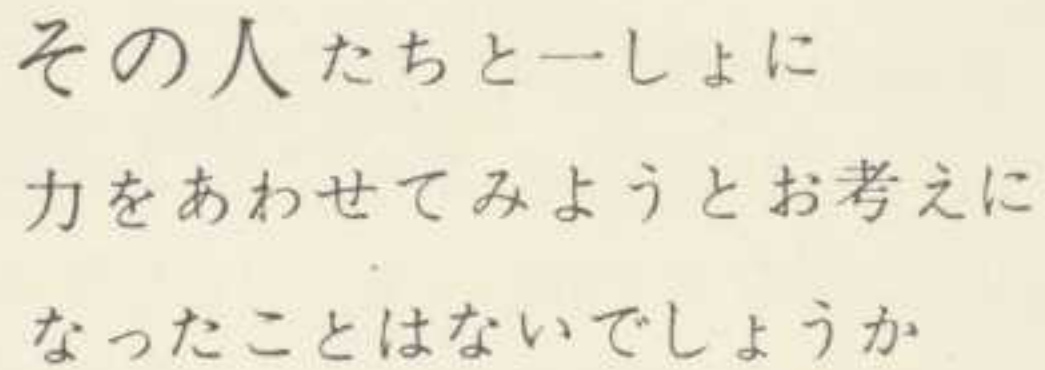 その人たちと一しょに
力をあわせてみようとお考えに
なったことはないでしょうか